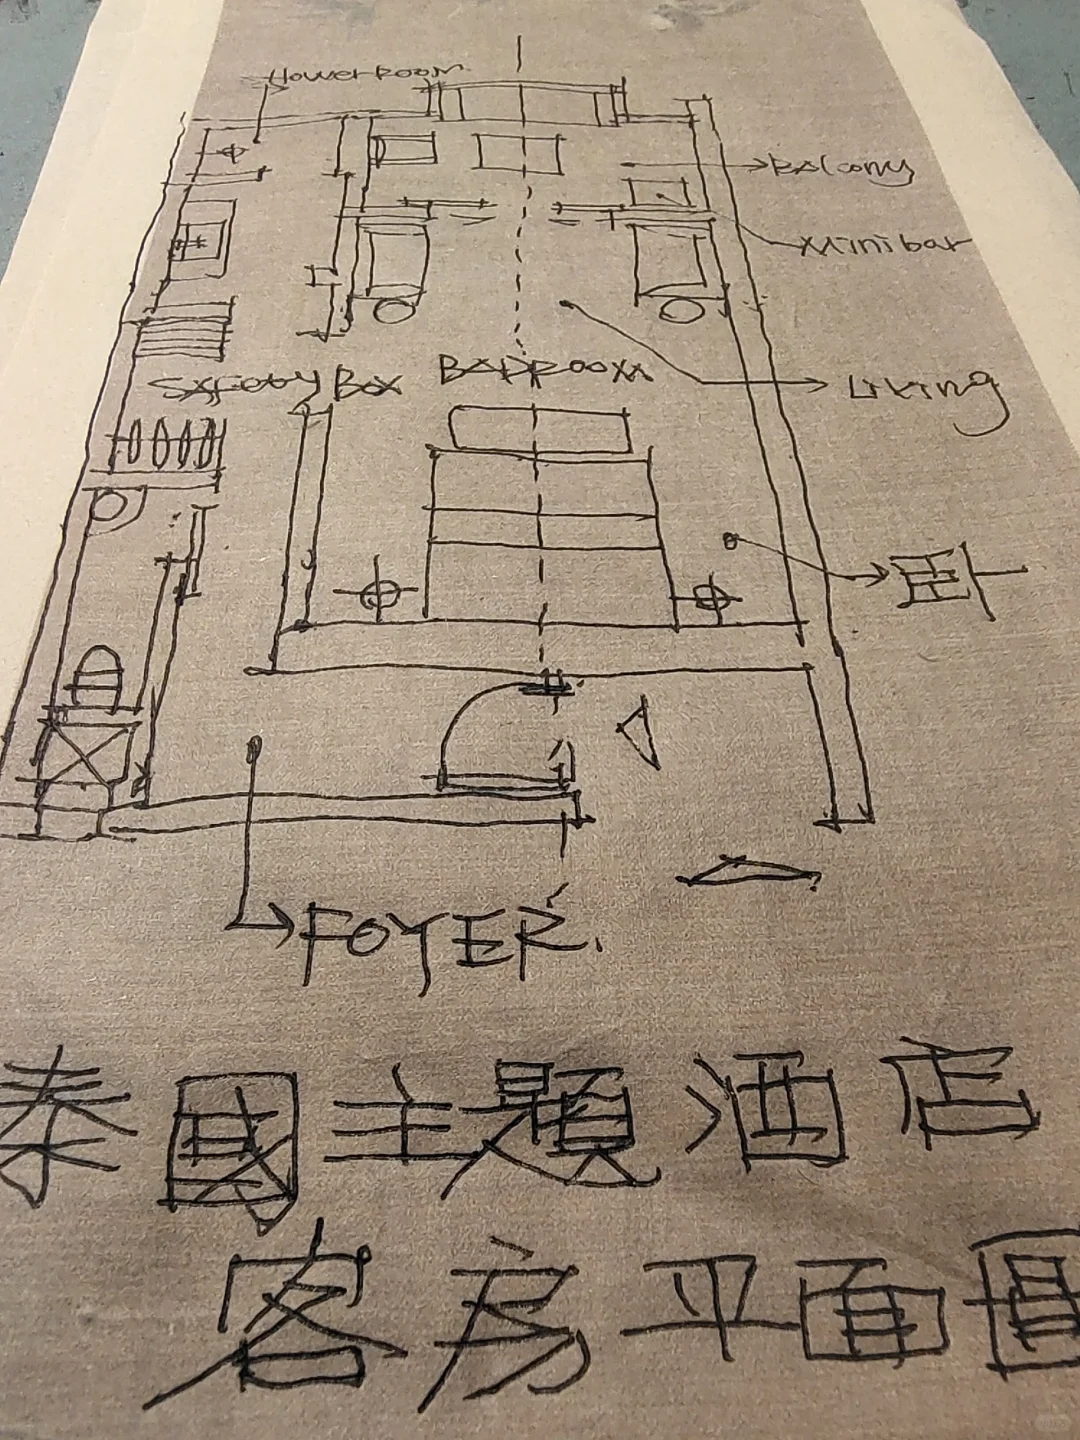 Howerroom
Balcony
Minibar
SAFetyBOX
BADROOM
Living
卧
FOYER.
泰國主題酒店
客房平面圖